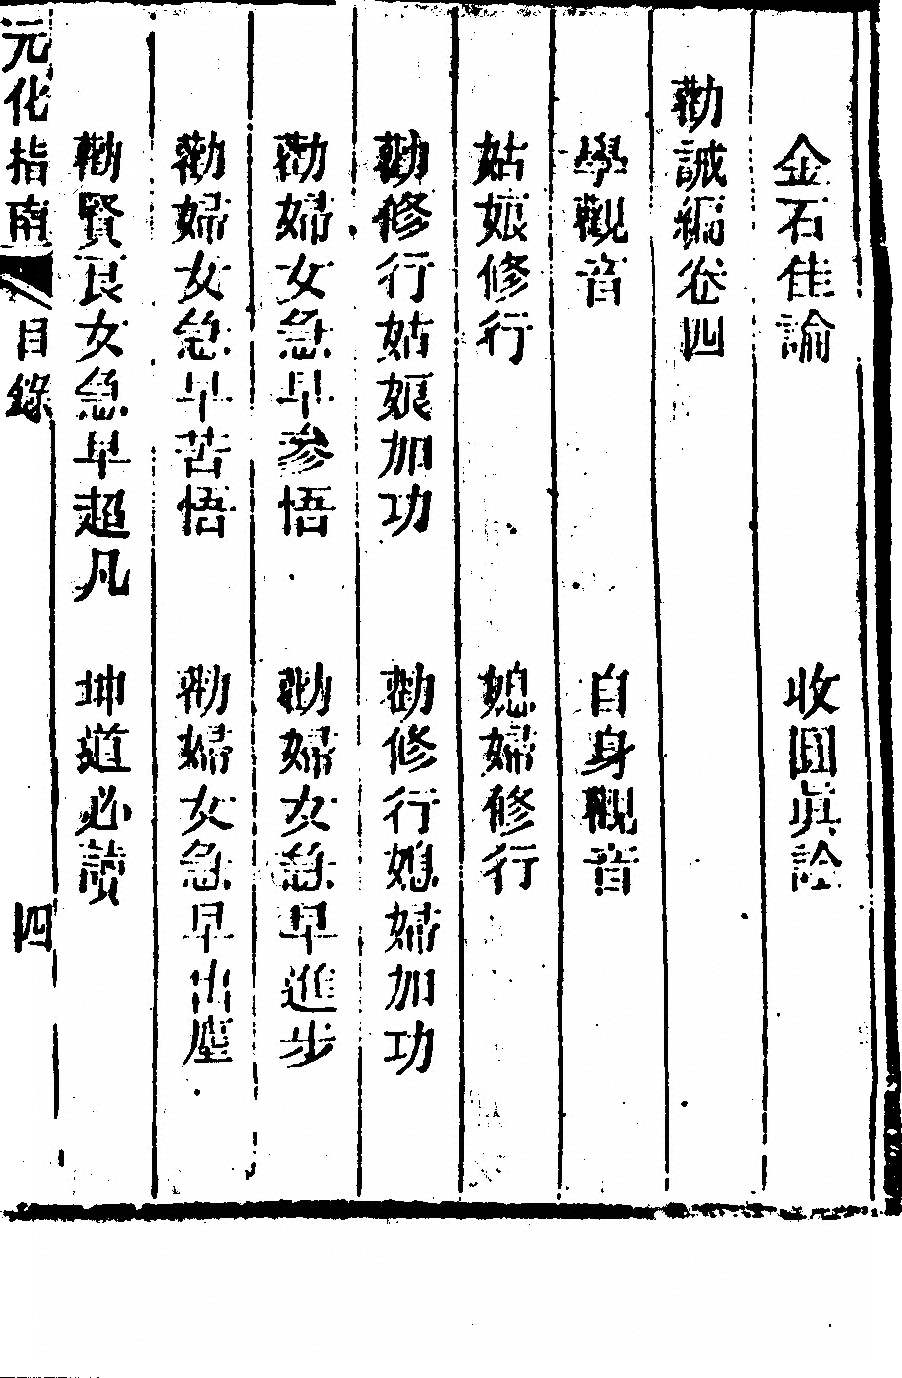 金石佳論　收圓眞詮
勸誡編卷四
學觀音　自身觀音
姑娘修行　媳婦修行
勸修行姑娘加功　勸修行媳婦加功
勸婦女急早參悟　勸婦女急早進步
勸婦女急早苦悟　勸婦女急早出塵
勸賢良女急早超凡　坤道必讀
元化指南　目錄　四